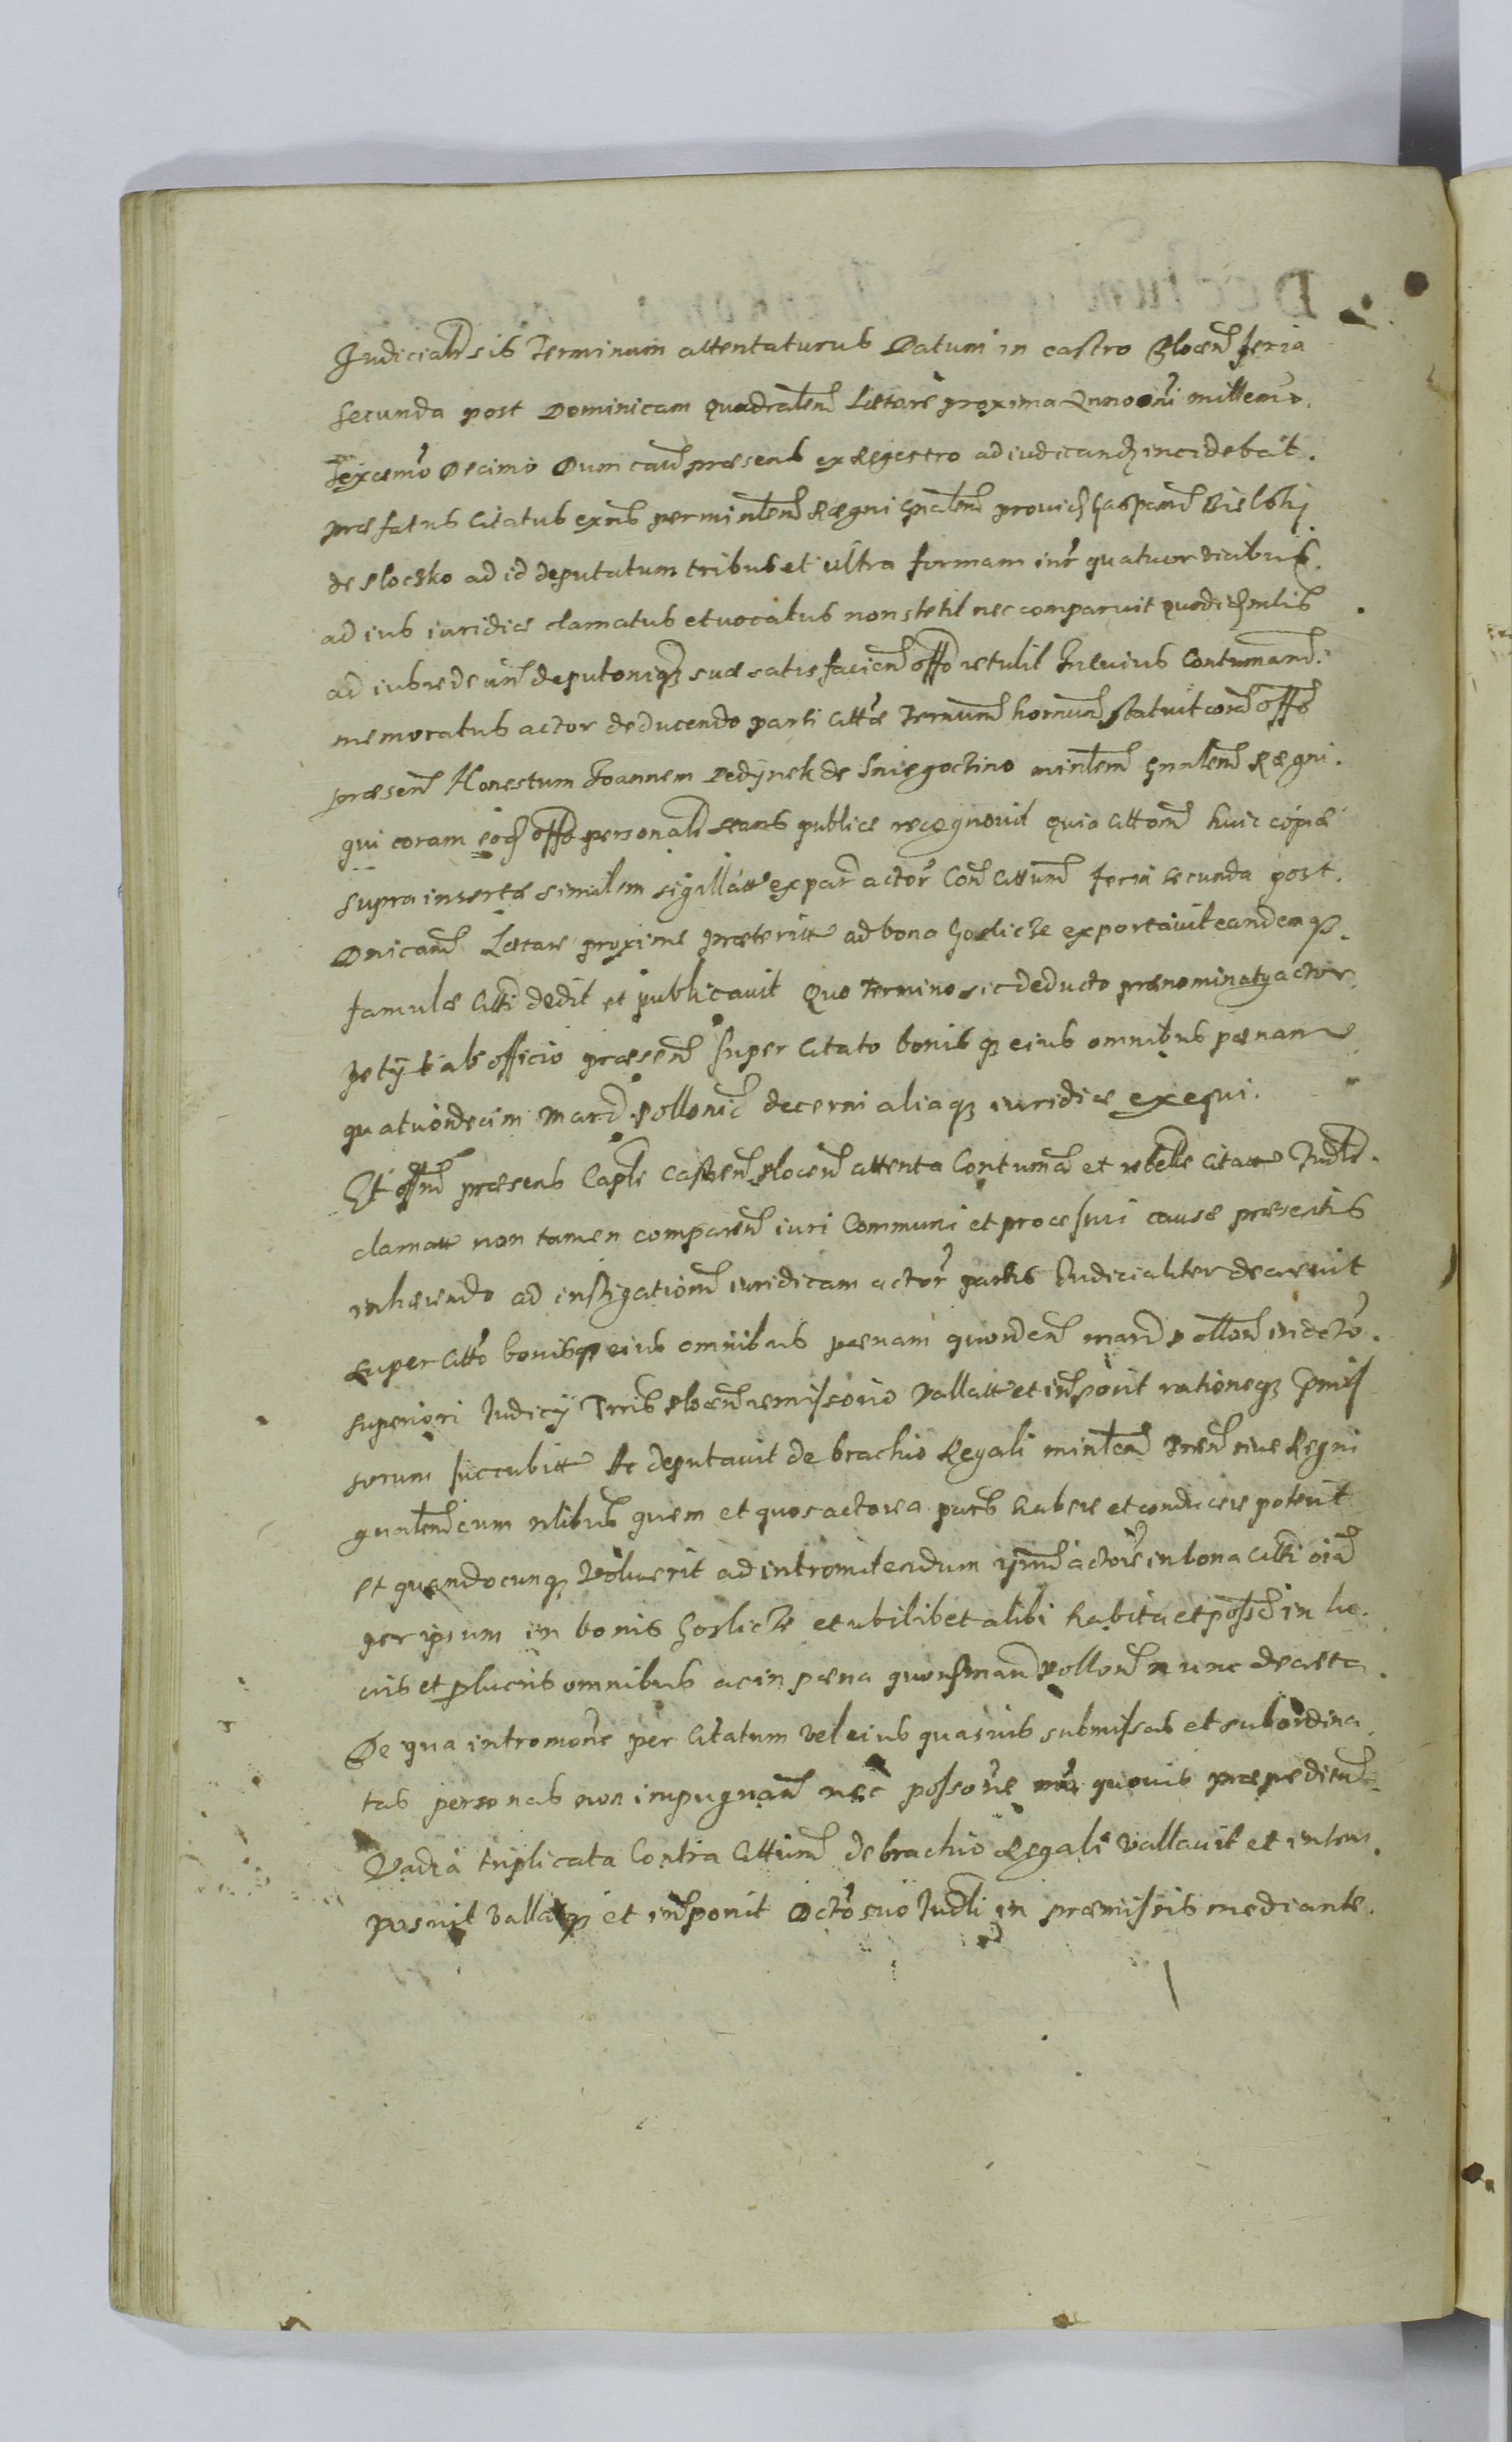 Judicialr sis Terminum attentaturus Datum in castro Plocen feria
secunda post Dominicam Quadralem Lætare proxima Anno Dni millemo
sexcemo Decimo Dum caus præsens ex Regestro ad iudicand incidebat.
præfatus Citatus ex ns per minlem Regni gnalem provid Casparum Bielski
de Plocsko ad id deputatum tribus et ultra formam iur quatuor vicibus.
ad ius iuridice clamatus et vocatus non stetit nec comparuit quod id mlis
ad ius redeun deputoniq suæ satisfacien offo retulit In cuius Contumam.
memoratus actor deducendo parti Cittæ Ternum hornum statuit coram offo
præsen Honestum Joannem Dedynek de Sniegocino minlem gnalem Regni.
qui coram eod offo personalr stans publice recognovit quia Cittom huic copiæ
supra insertæ similem sigillatt ex par actor Con Cittum feria secunda post.
Dnicam Lætare proxime præteritt ad bona Goslicze exportavit eandemq.
famulæ Citti dedit et publicavit Quo Termino sic deducto prænominatq actor
petyt ab officio præsen super Citato bonisq eius omnibus pænam
quatuordecim Marc Pollonic decerni aliaq iuridice exequi.
Et offm præsens Caple Castren Plocen attenta Contuma et rebelle Citatt Judlr.
clamatt non tamen comparen iuri Communi et processui causæ præsentis
inhærendo ad instigationem iuridicam actor partis Judicialiter decrevit
super Citto bonisq eius omnibus pænam quorden marc Pollon in dcto.
superiori Judicij Trris Plocen remissorio vallatt et interponit rationeq pmis
sorum succubitt Ac deputavit de brachio Regali minlem Tren sive Regni
gnalem cum nlibus quem et quos actorea pars habere et conducere poterit
et quandocunq voluerit ad intromitendum ipsum actore in bona Citti oia
per ipsum in bonis Goslicze et ubilibet alibi habita et possess in lu.
cris et perlucris omnibus ac in pæna quor marc Pollon nunc decreta.
De qua intromone per Citatum vel eius quasvis submissas et subordina
tas personas non impugnan nec possone quovis præpedien
Vadia triplicata Contra Cittum de brachio Regali vallavit et inter.
posuit vallatq et interponit Dcto suo Judli in præmissis mediante.